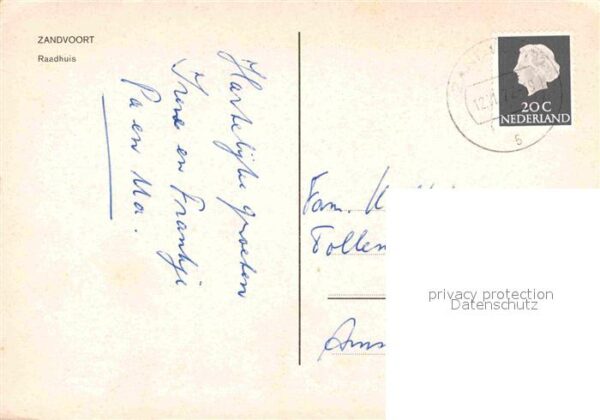 ZANDVOORT
Raadhuis
Hartelijke groeten
Irene en Frankje
Pa en Ma.
20 C
NEDERLAND
5
Fam.
privacy protection
Datenschutz